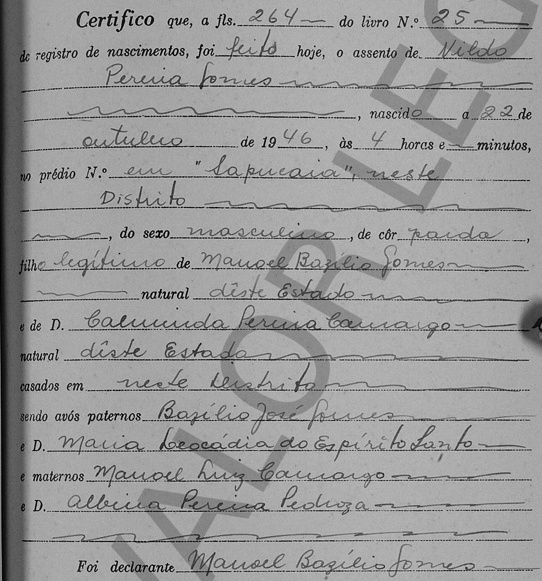 Certifico que, a fls. 264 do livro N.º 25
de registro de nascimentos, foi feito hoje, o assento de Nildo
Pereira Gomes
, nascido a 22 de
outubro de 1946, às 4 horas e minutos,
no prédio N.º em "Sapucaia", neste
Distrito
, do sexo masculino, de côr parda,
filho legítimo de Manoel Bazílio Gomes
natural dêste Estado
e de D. Carminda Pereira Camargo
natural dêste Estado
casados em neste Distrito
sendo avós paternos Bazílio José Gomes
e D. Maria Leocádia do Espírito Santo
e maternos Manoel Luiz Camargo
e D. Albina Pereira Pedroza
Foi declarante Manoel Bazílio Gomes
VALOR LEG